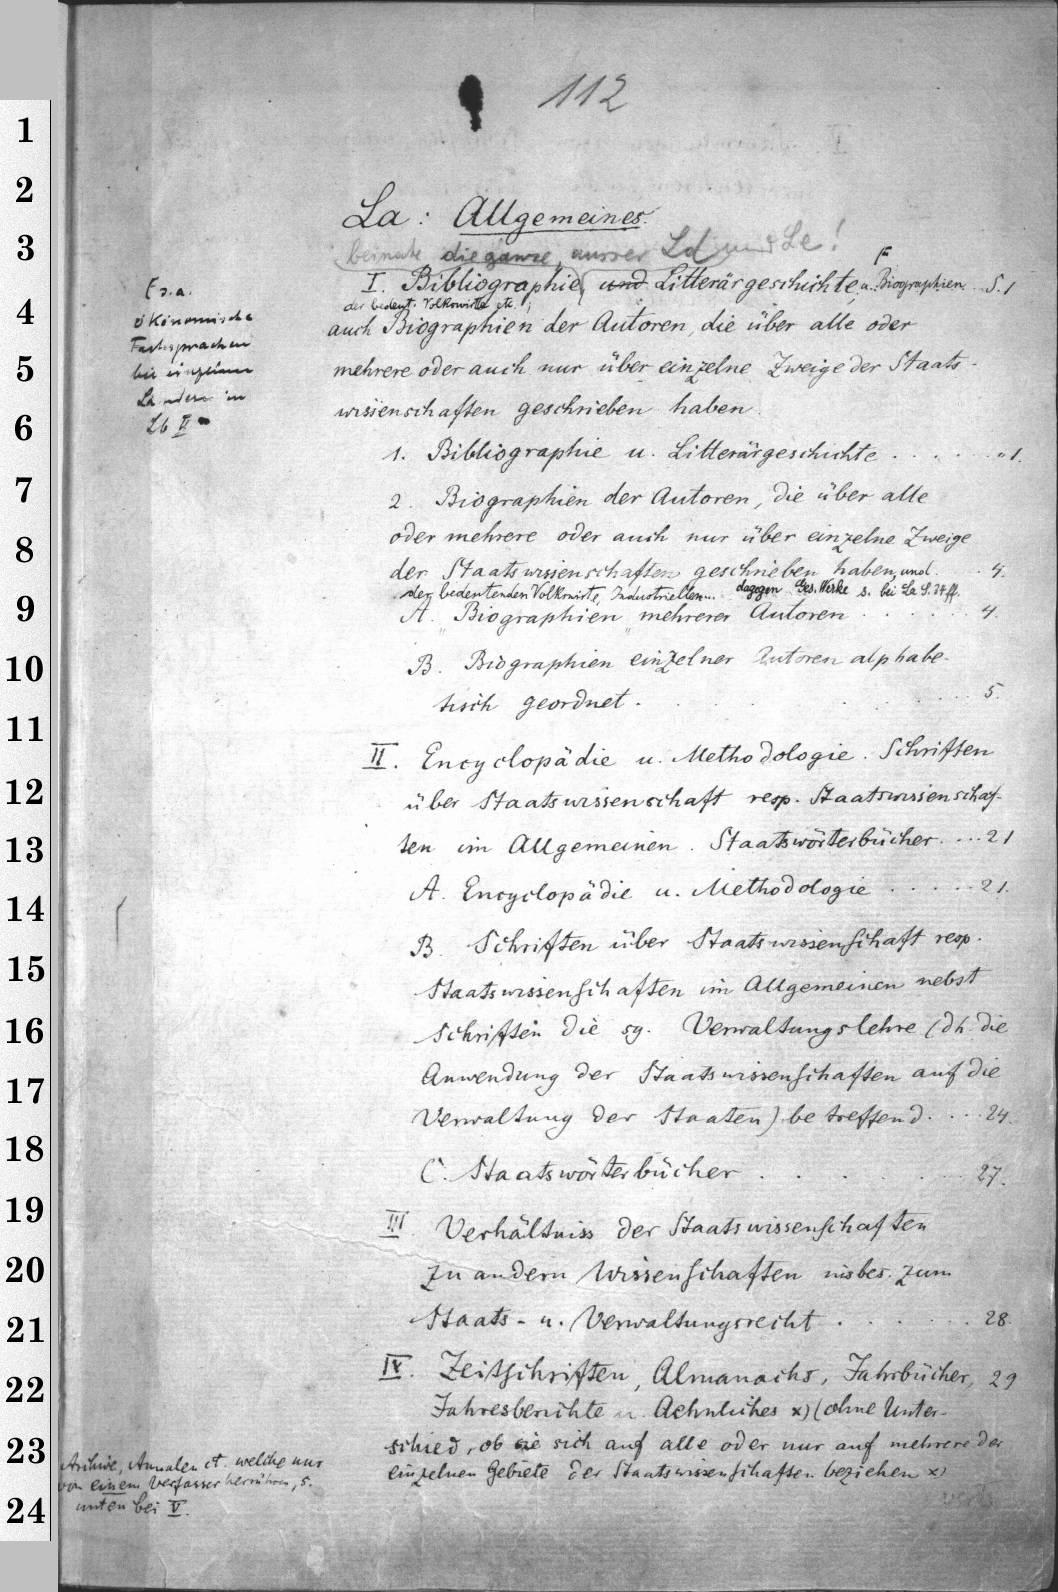 112
La : Allgemeines.
beinahe die ganze, ausser Ld und Le!
I. Bibliographie, und Litterärgeschichte, u. Biographien S. 1
der bedeut. Volkswirte etc.
auch Biographien der Autoren, die über alle oder
mehrere oder auch nur über einzelne Zweige der Staats-
wissenschaften geschrieben haben.
1. Bibliographie u. Litterärgeschichte . . . . . . " 1.
2. Biographien der Autoren, die über alle
oder mehrere oder auch nur über einzelne Zweige
der Staatswissenschaften geschrieben haben, und . . . 4.
der bedeutenden Volkswirte, Industriellen... dagegen Ges. Werke s. bei La S. 24 ff.
A. Biographien mehrerer Autoren . . . . . 4.
B. Biographien einzelner Autoren alphabe-
tisch geordnet . . . . . . . 5.
II. Encyclopädie u. Methodologie. Schriften
über Staatswissenschaft resp. Staatswissenschaf-
ten im Allgemeinen. Staatswörterbücher. ... 21
A. Encyclopädie u. Methodologie . . . . . 21.
B. Schriften über Staatswissenschaft resp.
Staatswissenschaften im Allgemeinen nebst
Schriften die sg. Verwaltungslehre (dh. die
Anwendung der Staatswissenschaften auf die
Verwaltung der Staaten) betreffend. . . . 24.
C. Staatswörterbücher . . . . . . 27.
III Verhältniss der Staatswissenschaften
zu andern Wissenschaften insbes. zum
Staats- u. Verwaltungsrecht . . . . . . 28.
IV. Zeitschriften, Almanachs, Jahrbücher, 29
Jahresberichte u. Aehnliches x) (ohne Unter-
schied, ob sie sich auf alle oder nur auf mehrere der
einzelnen Gebiete der Staatswissenschaften beziehen x)
F s. a.
ökonomische
Fachsprachen
bei einzelnen
Ländern in
Lb II
Archive, Annalen ct. welche nur
von einem Verfasser herrühren, s.
unten bei V.
1
2
3
4
5
6
7
8
9
10
11
12
13
14
15
16
17
18
19
20
21
22
23
24